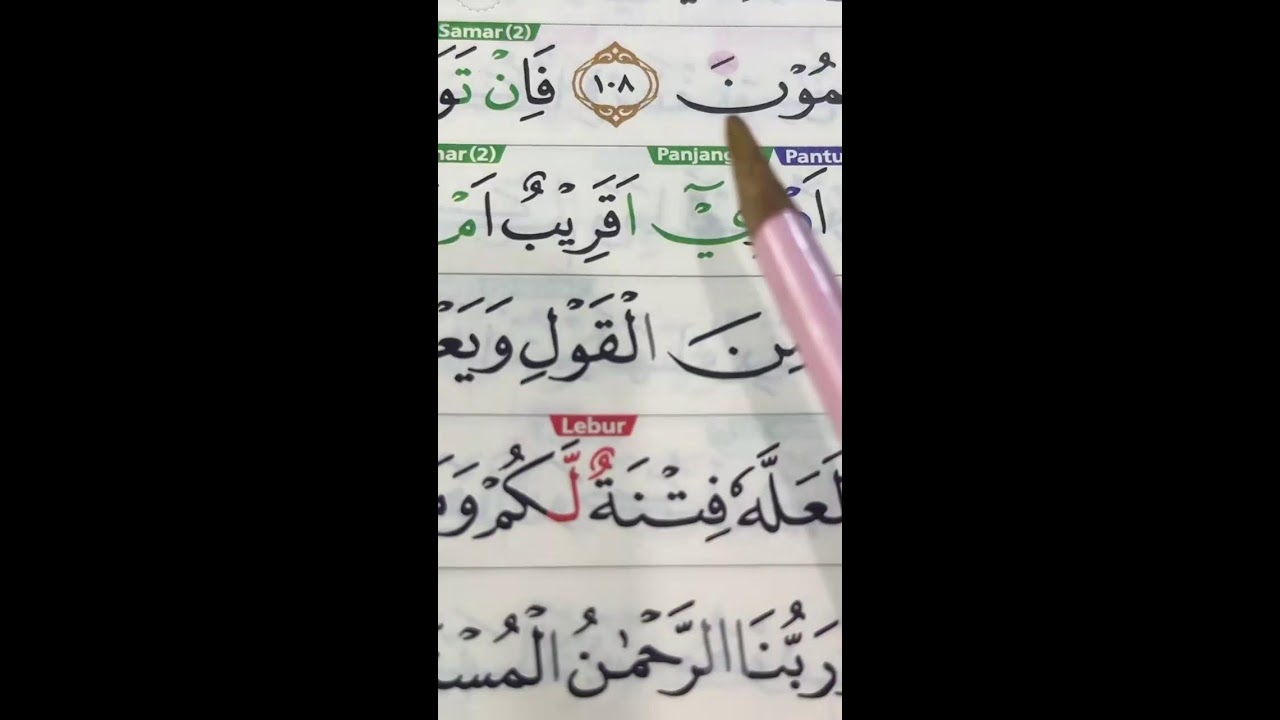 Samar (2)
مُوْنَ ١٠٨ فَاِنْ تَوَ
mar (2) Panjang Pantu
اَدْرِيْٓ اَقَرِيْبٌ اَمْ
مِنَ الْقَوْلِ وَيَعْ
Lebur
لَعَلَّهٗ فِتْنَةٌ لَّكُمْ وَمَ
وَرَبُّنَا الرَّحْمٰنُ الْمُسْتَ